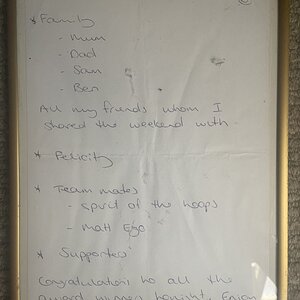 * Family
- Mum
- Dad
- Sam
- Ben
All my friends whom I
shared the weekend with
* Felicity
* Team mates
- spirit of the hoops
- Matt
* Supporters
Congratulations to all the
award winners tonight. Enjoy